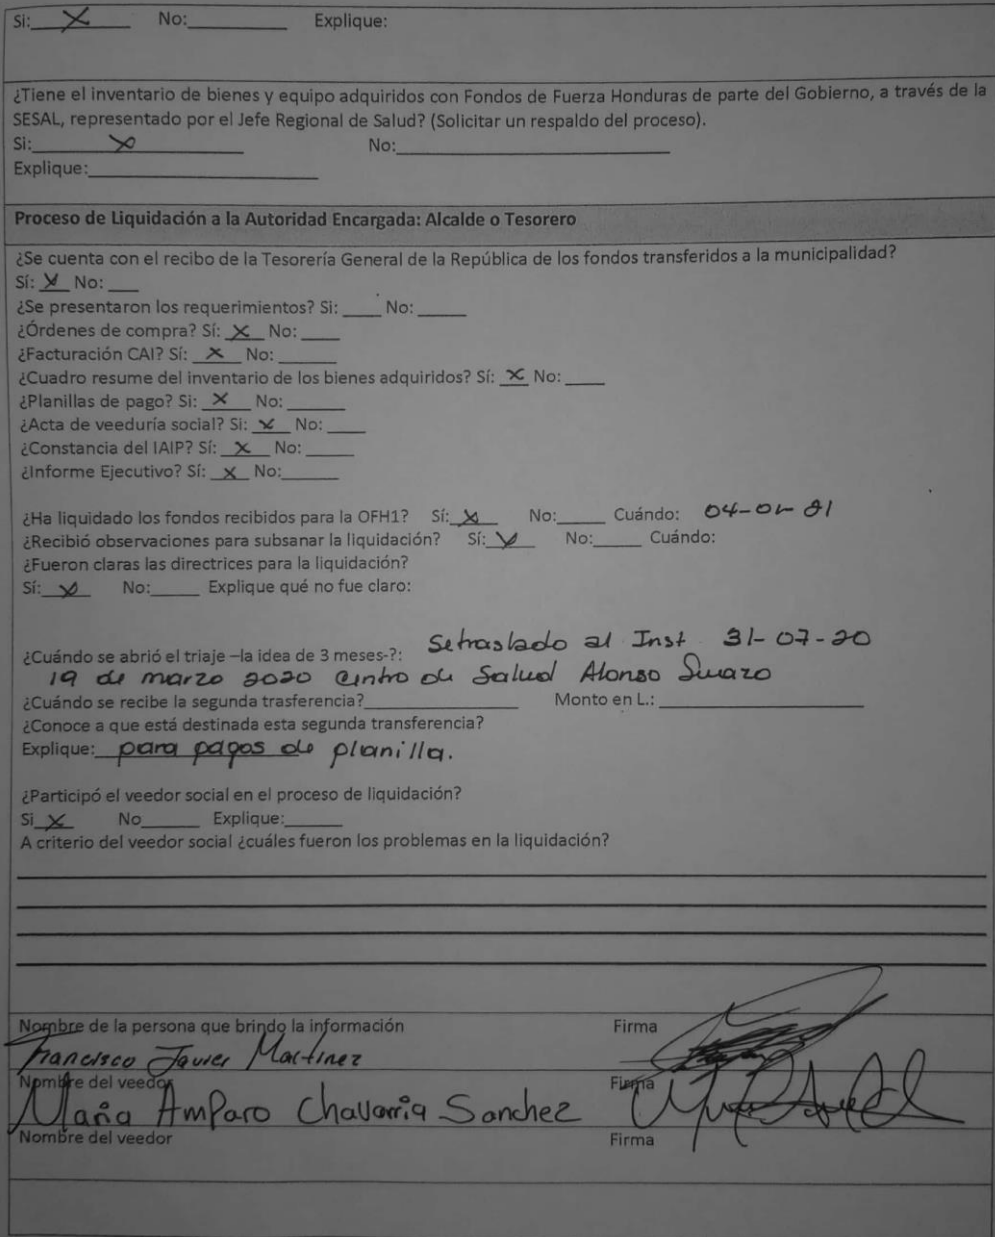 Si: X No:________ Explique:
¿Tiene el inventario de bienes y equipo adquiridos con Fondos de Fuerza Honduras de parte del Gobierno, a través de la
SESAL, representado por el Jefe Regional de Salud? (Solicitar un respaldo del proceso).
Si: X No:________
Explique:________
Proceso de Liquidación a la Autoridad Encargada: Alcalde o Tesorero
¿Se cuenta con el recibo de la Tesorería General de la República de los fondos transferidos a la municipalidad?
Sí: X No: ___
¿Se presentaron los requerimientos? Si: ____ No: _____
¿Órdenes de compra? Sí: X No: ____
¿Facturación CAI? Sí: X No: ______
¿Cuadro resume del inventario de los bienes adquiridos? Sí: X No: ____
¿Planillas de pago? Si: X No: ______
¿Acta de veeduría social? Si: X No: ____
¿Constancia del IAIP? Sí: X No: _____
¿Informe Ejecutivo? Sí: X No:______
¿Ha liquidado los fondos recibidos para la OFH1? Sí: X No:_____ Cuándo: 04-01-21
¿Recibió observaciones para subsanar la liquidación? Sí: X No:_____ Cuándo:
¿Fueron claras las directrices para la liquidación?
Sí: X No:_____ Explique qué no fue claro:
Setraslado al Inst 31-07-20
¿Cuándo se abrió el triaje –la idea de 3 meses-?:
19 de marzo 2020 Centro de Salud Alonso Suazo
¿Cuándo se recibe la segunda trasferencia?________ Monto en L.: ________
¿Conoce a que está destinada esta segunda transferencia?
Explique: para pagos de planilla.
¿Participó el veedor social en el proceso de liquidación?
Si X No______ Explique:______
A criterio del veedor social ¿cuáles fueron los problemas en la liquidación?
Nombre de la persona que brindo la información Firma
Francisco Javier Martinez
Nombre del veedor Firma
Maria Amparo Chavarria Sanchez
Nombre del veedor Firma